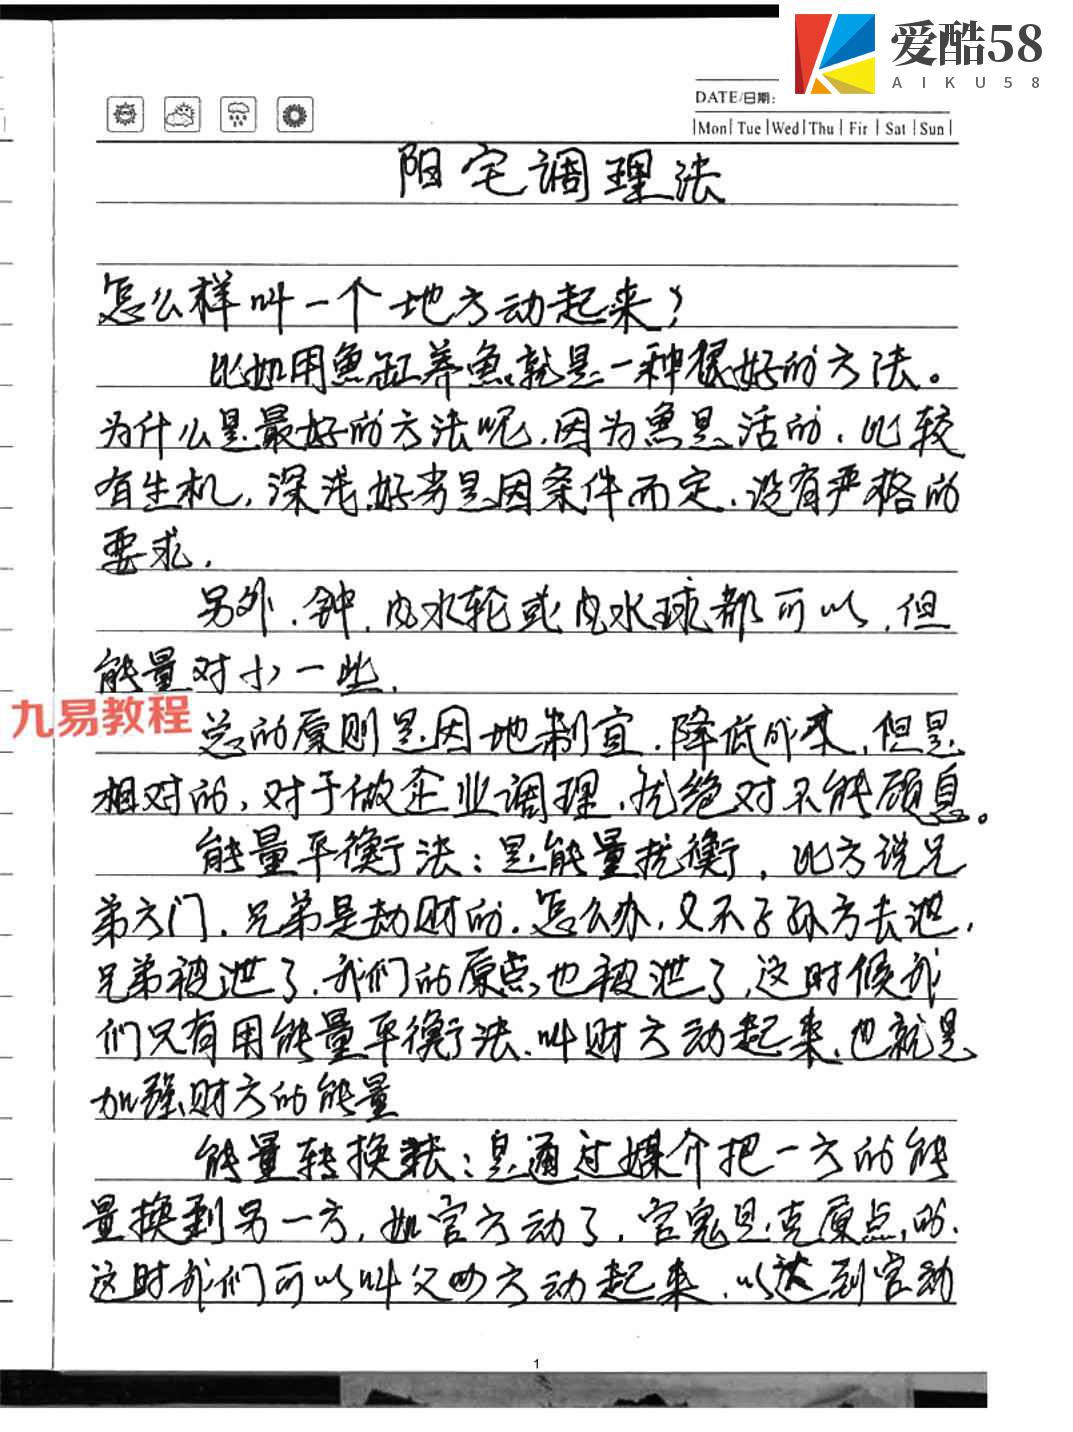 爱酷58
AIKU58
DATE/日期:
Mon Tue Wed Thu Fir Sat Sun
阳宅调理法
怎么样叫一个地方动起来?
比如用鱼缸养鱼,就是一种很好的方法。
为什么是最好的方法呢,因为鱼是活的,比较
有生机,深浅好劣是因条件而定,没有严格的
要求.
另外,钟,水轮或水球都可以,但
能量对小一些,
九易教程
总的原则是因地制宜,降低成本,但是
相对的,对于做企业调理,就绝对不能顾惜。
能量平衡法:是能量扰衡,比方说兄
弟方门,兄弟是劫财的,怎么办,又不子孙方去泄,
兄弟被泄了,我们的原点,也被泄了,这时候我
们只有用能量平衡法,叫财方动起来,也就是
加强财方的能量
能量转换法:是通过媒介把一方的能
量换到另一方,如官方动了,官鬼是克原点,的,
这时我们可以叫父母方动起来,以达到官动
1